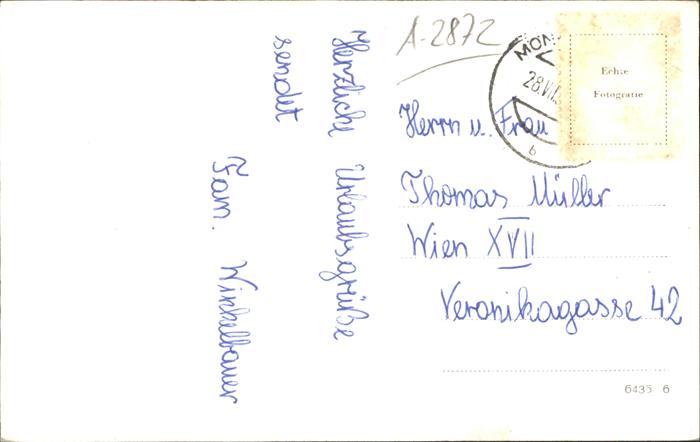 Herzliche Urlaubsgrüße
sendet
Fam. Winkelbauer
A-2872
28.VI.
b
Echte
Fotografie
Herrn u. Frau
Thomas Müller
Wien XVII
Veronikagasse 42
6435 6